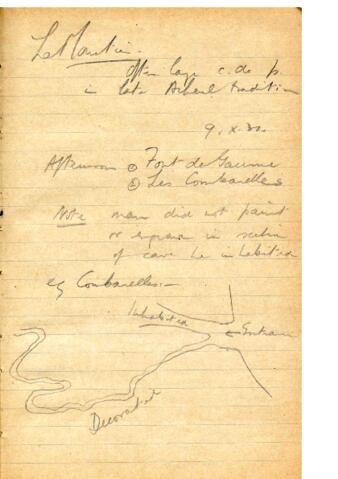 Le Moustier.
Often large c. de p.
in late Acheul tradition
9. X. 30.
Afternoon ① Font de Gaume
② Les Combarelles
Note man did not paint
or engrave in section
of cave he inhabited
eg Combarelles:-
Inhabited
← Entrance
Decorated